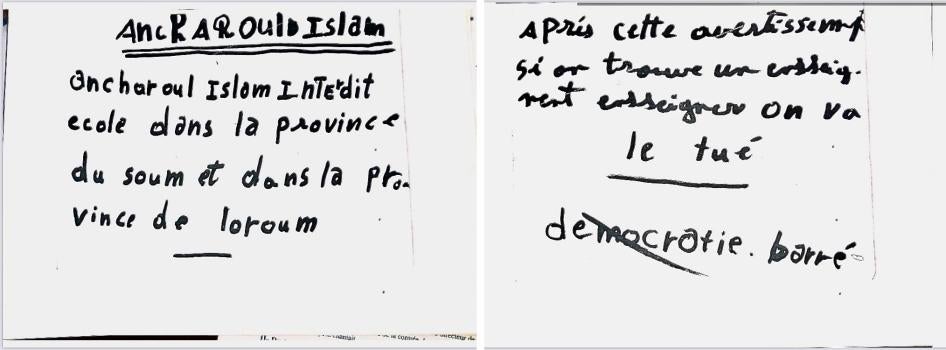 AncKAROulD Islam
ancharoul Islam InTErdit
ecole dans la province
du soum et dans la pro-
vince de loroum
après cette avertissemt
si on trouve un ensseig-
nent ensseigner on va
le tué
democratie. barré